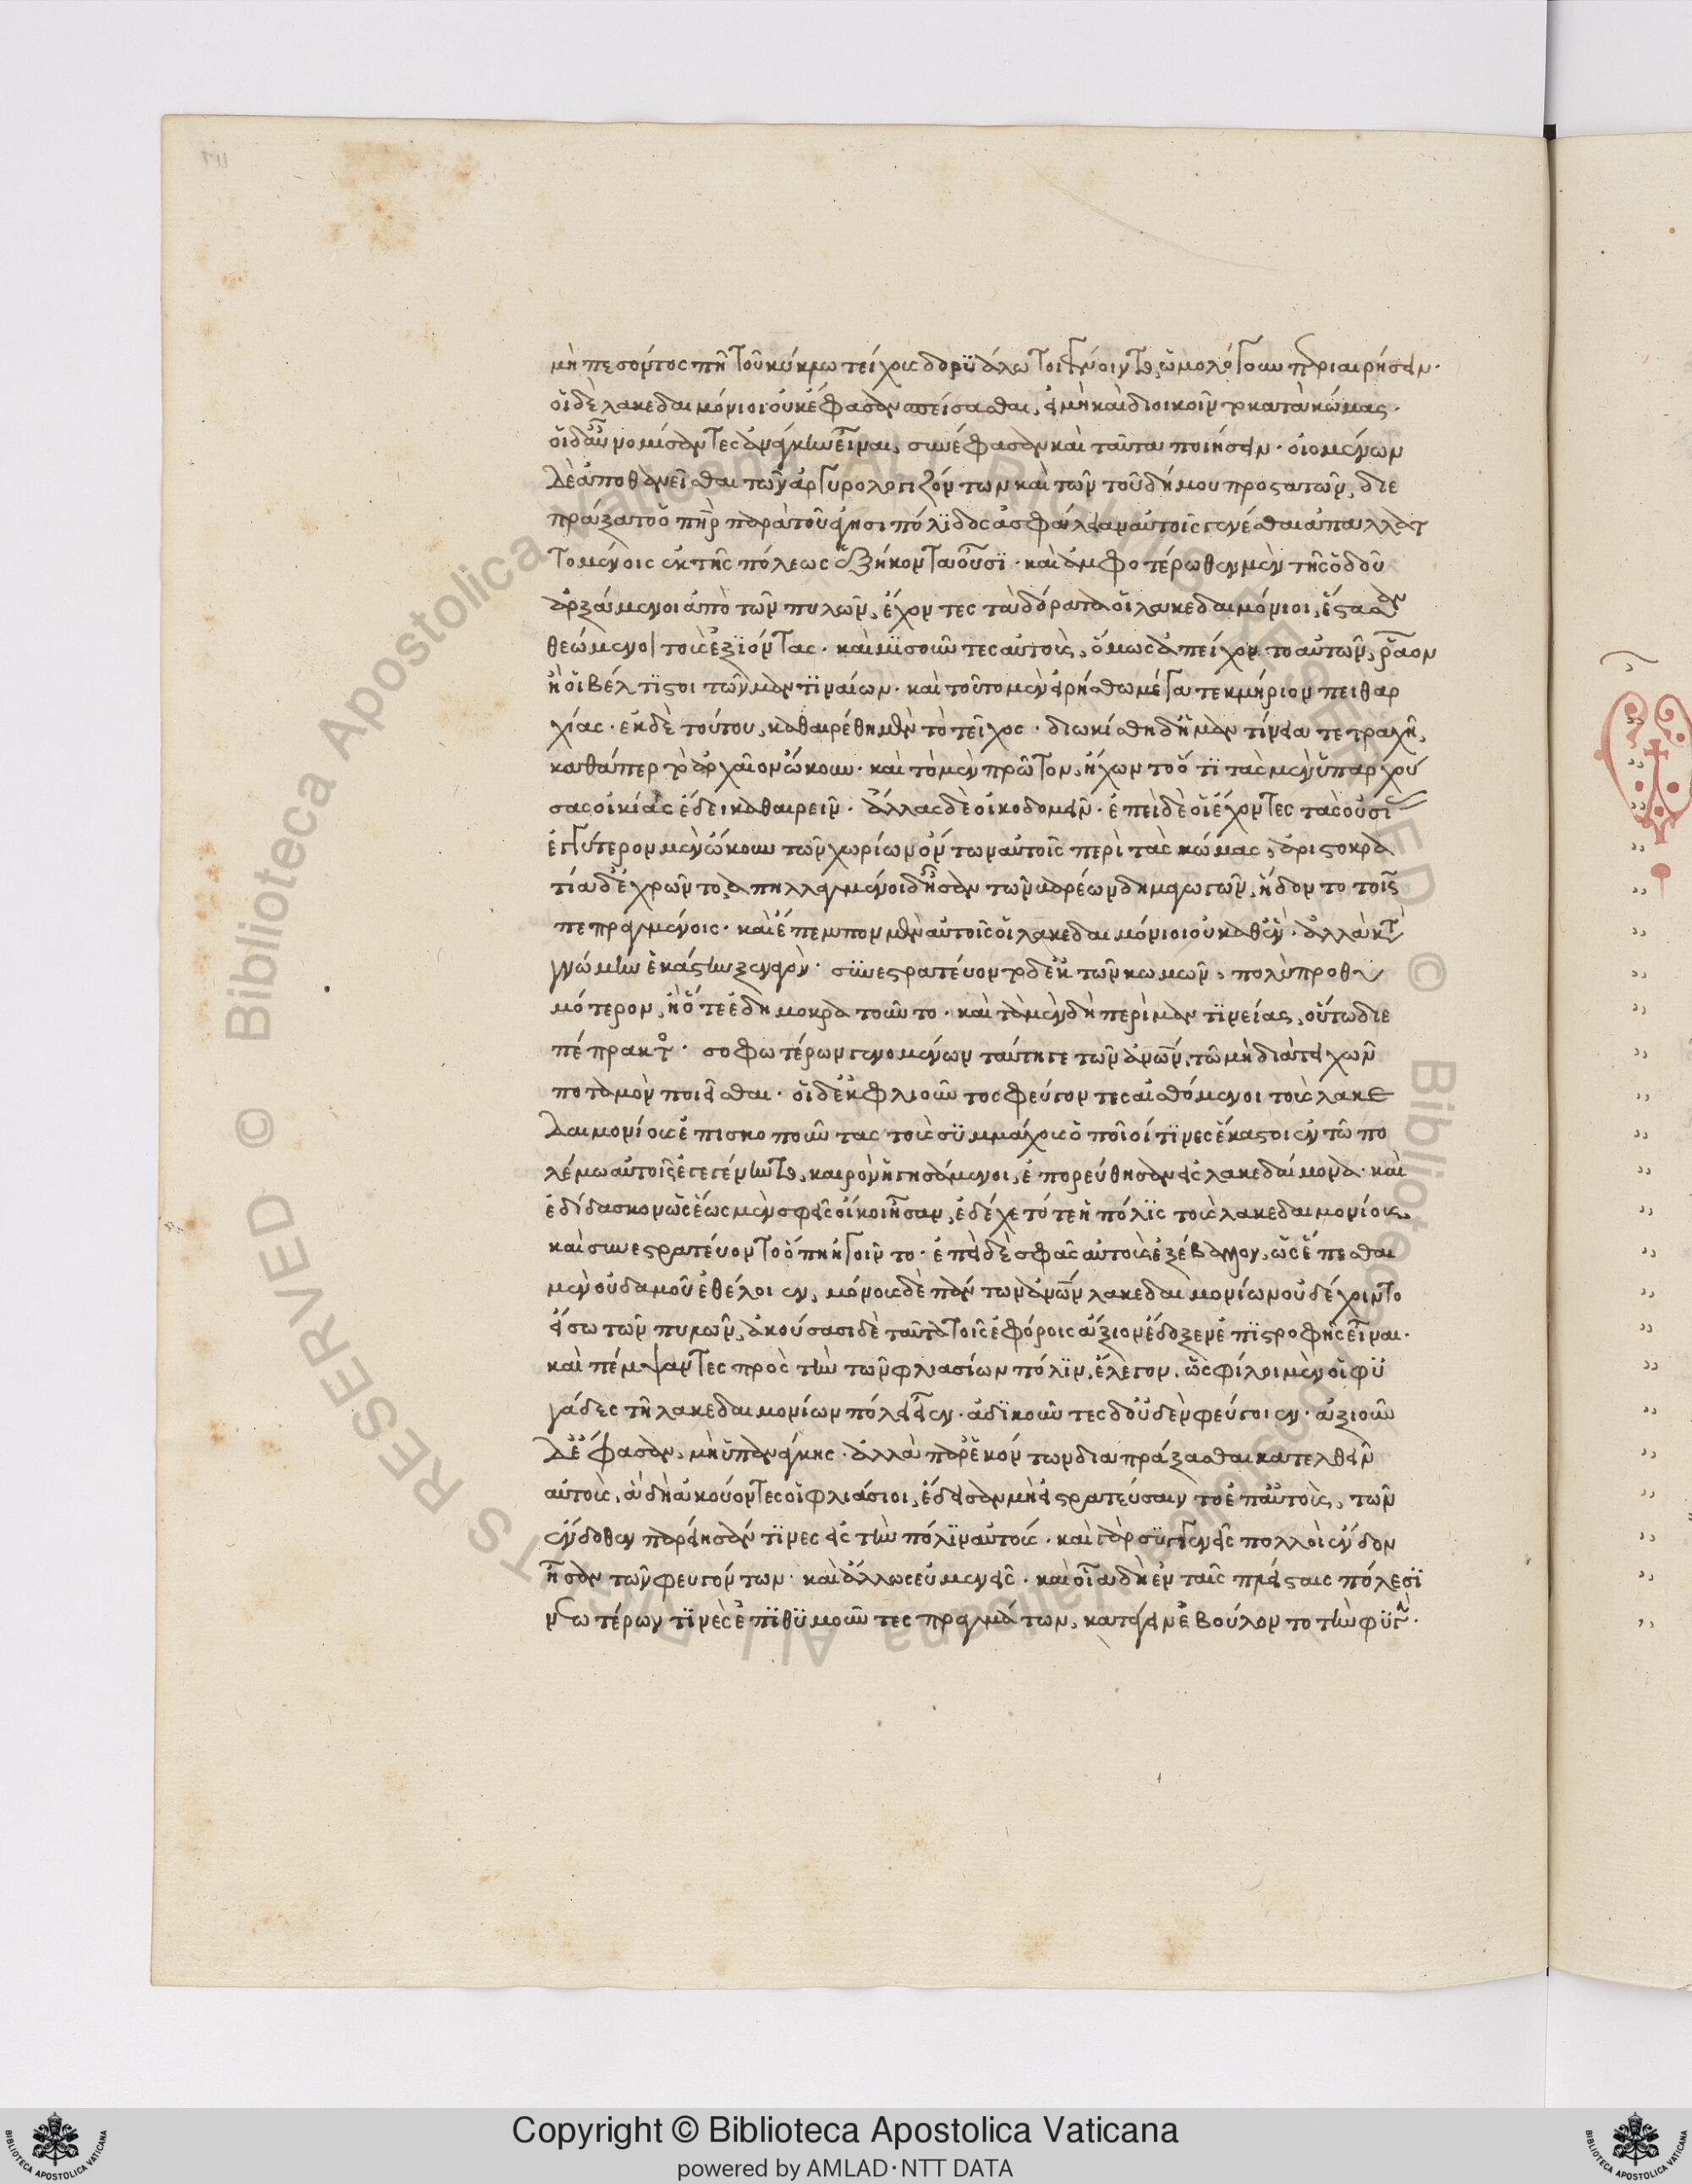 μὴ πεσόντος πῆ τοῦ κύκλω τείχους δορϋάλωτοι γένοιντο, ὡμολόγουν περιαιρήσειν·
οἱ δὲ λακεδαιμόνιοι οὐκ ἔφασαν σπείσασθαι, εἰ μὴ καὶ διοικοῖντο κατὰ κώμας·
οἱ δ' αὖ νομίσαντες ἀνάγκην εἶναι, συνέφασαν καὶ ταῦτα ποιήσειν· οἰομένων
δὲ ἀποθανεῖσθαι τῶν ἀργυρολογιζόντων καὶ τῶν τοῦ δήμου προστατῶν, διε
πράξατο ὁ πηρ παρὰ τοῦ ἀγησιπόλϊδος ἀσφάλειαν αὐτοῖς γενέσθαι ἀπαλλατ
τομένοις ἐκ τῆς πόλεως ἑξήκοντα οὖσϊ· καὶ ἀμφοτέρωθεν μὲν τῆς ὁδοῦ
ἀρξάμενοι ἀπὸ τῶν πυλῶν, ἔχοντες τὰ δόρατα οἱ λακεδαιμόνιοι, ἕστασαν
θεώμενοι τοὺς ἐξϊόντας· καὶ μϊσοῦντες αὐτοὺς, ὅμως ἀπείχοντο αὐτῶν, ῥᾶον
ἢ οἱ βέλτϊστοι τῶν μαντϊναίων· καὶ τοῦτο μὲν εἰρήσθω μέγα τεκμήριον πειθαρ
χίας· ἐκ δὲ τούτου, καθαιρέθη μὲν τὸ τεῖχος· διωκίσθη δ' ἡ μαντίνεια τετραχῆ,
καθάπερ τὸ ἀρχαῖον ὤκουν· καὶ τὸ μὲν πρῶτον, ἤχθοντο ὅτϊ τὰς μὲν ὑπαρχού
σας οἰκίας ἔδει καθαιρεῖν· ἄλλας δὲ οἰκοδομεῖν· ἐπεὶ δὲ οἱ ἔχοντες τὰς οὐσίας
ἐγγύτερον μὲν ὤκουν τῶν χωρίων ὄντων αὐτοῖς περὶ τὰς κώμας, ἀριστοκρα
τία δ' ἐχρῶντο, ἀπηλλαγμένοι δ' ἦσαν τῶν βαρέων δημαγωγῶν, ἥδοντο τοῖς
πεπραγμένοις· καὶ ἔπεμπον μὲν αὐτοῖς οἱ λακεδαιμόνιοι οὐ καθ' ἕν· ἀλλὰ κατὰ
γνώμην ἑκάστην ξεναγόν· συνεστρατεύοντο δ' ἐκ τῶν κωμῶν, πολὺ προθυ
μότερον, ἢ ὅτε ἐδημοκρατοῦντο· καὶ τὰ μὲν δὴ περὶ μαντϊνείας, οὕτω διε
πέπρακτο· σοφωτέρων γενομένων ταύτη γε τῶν ἀνθρώπων, τῶ μὴ διὰ τειχῶν
ποταμὸν ποιεῖσθαι· οἱ δ' ἐκ φλιοῦντος φεύγοντες αἰσθόμενοι τοὺς λακε
δαιμονίους ἐπισκοποῦντας τοὺς συμμάχους ὁποῖοί τϊνες ἕκαστοι ἐν τῶ πο
λέμω αὐτοῖς ἐγεγένηντο, καιρὸν ἡγησάμενοι, ἐπορεύθησαν εἰς λακεδαίμονα· καὶ
ἐδίδασκον ὡς ἕως μὲν σφεῖς οἴκοι ἦσαν, ἐδέχετό τε ἡ πόλϊς τοὺς λακεδαιμονίους,
καὶ συνεστρατεύοντο ὅπη ἡγοῖντο· ἐπεὶ δὲ σφᾶς αὐτοὺς ἐξέβαλλον, ὡς ἕπεσθαι
μὲν οὐδαμοῦ ἐθέλοιεν, μόνους δὲ πάντων ἀνθρώπων λακεδαιμονίων οὐ δέχοιντο
εἴσω τῶν πυλῶν, ἀκούσασι δὲ ταῦτα τοῖς ἐφόροις ἄξιον ἔδοξεν ἐπϊστροφῆς εἶναι·
καὶ πέμψαντες πρὸς τὴν τῶν φλιασίων πόλϊν, ἔλεγον, ὡς φίλοι μὲν οἱ φϋ
γάδες τῆ λακεδαιμονίων πόλει εἶεν· ἀδϊκοῦντες δ' οὐδὲν φεύγοιεν· ἀξιοῦν
δ' ἔφασαν, μὴ ὑπ' ἀνάγκης· ἀλλὰ παρ' ἑκόντων διαπράξασθαι κατελθεῖν
αὐτοὺς, ἃ δὴ ἀκούοντες οἱ φλιάσιοι, ἔδεισαν μὴ εἰ στρατεύσαιντο ἐπ' αὐτοὺς, τῶν
ἔνδοθεν παρείησάν τϊνες εἰς τὴν πόλϊν αὐτούς· καὶ γὰρ συγγενεῖς πολλοὶ ἔνδον
ἦσαν τῶν φευγόντων· καὶ ἄλλως εὐμενεῖς· καὶ οἷα δὴ ἐν ταῖς πλείσταις πόλεσϊ
νεωτέρων τϊνὲς ἐπϊθϋμοῦντες πραγμάτων, κατάγειν ἐβούλοντο τὴν φϋγήν·